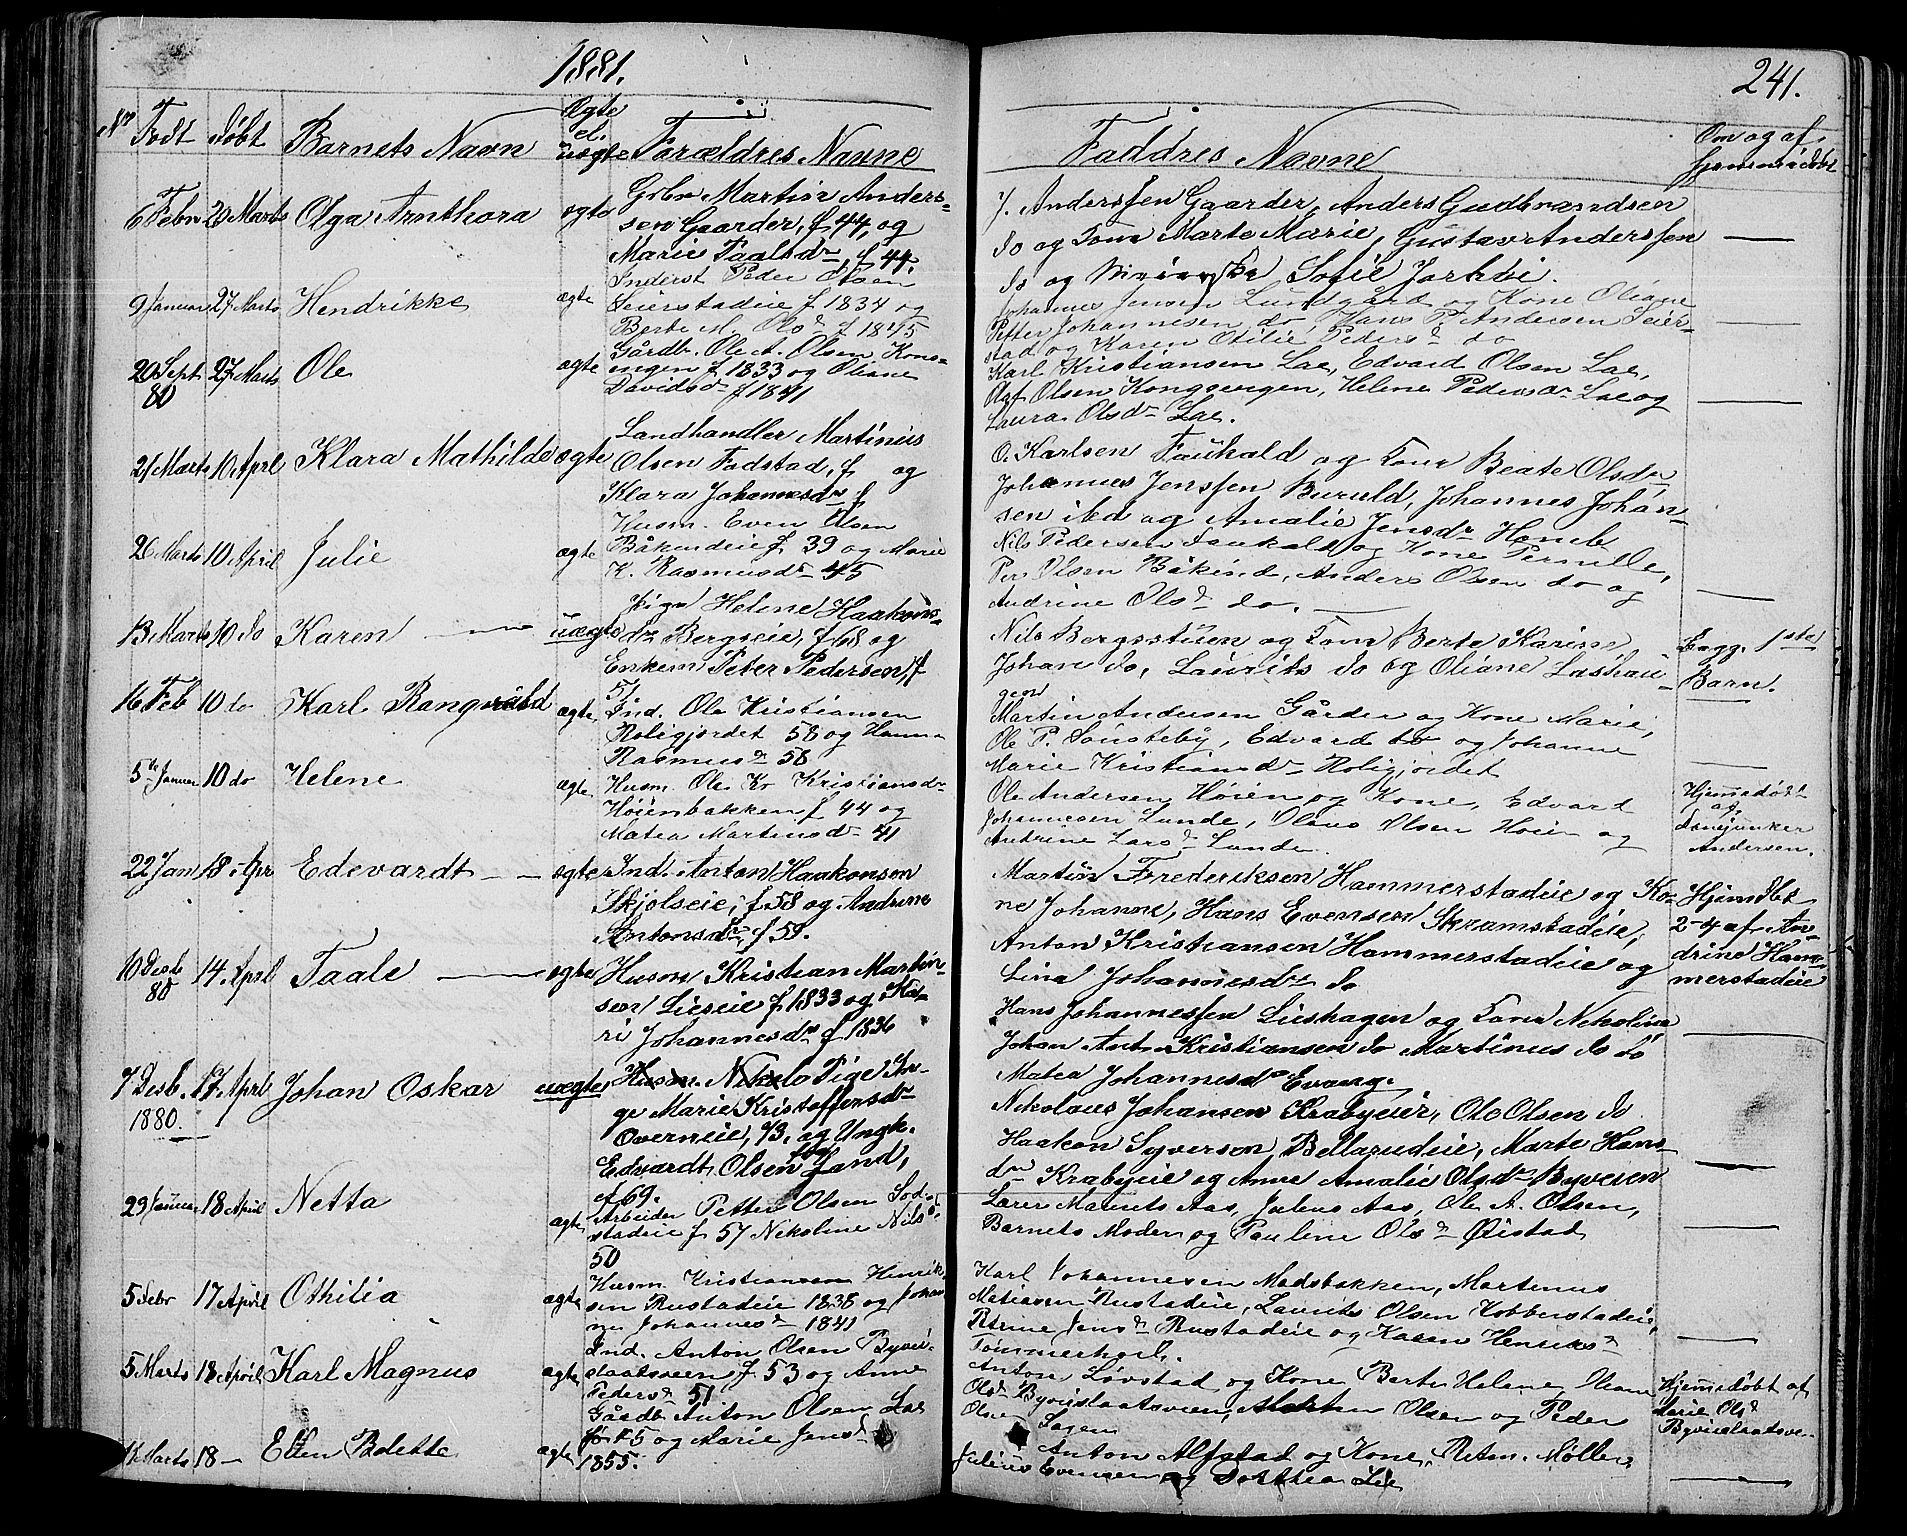 1881.
241.
No Født Døbt Barnets Navn Ægte el. uægte Forældres Navne Faddres Navne Om og af hjemmedøbt
6 Febr 20 Marts Olga Arnthora ægte Grbr Martin Anders-
sen Gaarder, f 44, og
Marie Paalsdr, f 44.
J. Anderssen Gaarder, Anders Gudbrandsen
do og Marte Marie, Gustav Anderssen
do og Sofie
9 Januar 27 Marts Hendrikke ægte Inderst Peder Olsen
Seierstadeie f 1834 og
Berte M. Olsd f 1845
Johannes Jensen Lundgård og Kone Oliane
Petter Johannesen do Hans P. Andersen Seier-
stad og Karen Otilie Pedersd do
20 Sept 80 27 Marts Ole ægte Gårdb. Ole A. Olsen Kons-
ungen f 1833 og Oliane
Davidsd f 1841
Karl Kristiansen Lae, Edvard Olsen Lae,
Olaf Olsen Kongsvegen, Helene Pedersdr Lae og
Laura Olsdr Lae.
21 Marts 10 Aprl Klara Mathilde ægte Landhandler Martinus
Olsen Fodstad, f og
Klara Johannesdr f
O. Karlsen Faukald og Beate Olsdr
Johannes Jenssen Buruld, Johannes Johan-
sen ibd og Amalie Jensdr
26 Marts 10 April Julie ægte Husm. Even Olsen
Båkindeie f 39 og Marie
K. Rasmusdr 45
Nils Pedersen Faukald og Kone Pernille,
Per Olsen Båkind, Anders Olsen do og
Andrine Olsd do.
13 Marts 10 do Karen uægte Pige Helene Haakons-
dr Bergseie, f 68 og
Enkem Peter Pedersen, f
51.
Nils Bergsstuen og Berte Karine,
Johan do, Laurits do og Oliane Lashau-
gen
Begg. 1ste
Barn.
16 Feb 10 do Karl Rangvald ægte Ind. Ole Kristiansen
Roligjordet 58 og Hanna
Rasmusd 58
Martin Andersen Gårder og Kone Marie,
Ole P. Sousteby, Edvard do og Johanne
Marie Kristiansdr Roligjordet
5te Januar 10 do Helene ægte Husm. Ole Kr Kristiansdr
Høienbakken f 44 og
Matea Martinsdr 41
Ole Andersen Høien og Kone, Edvard
Johannesen Lunde, Olaus Olsen Høien og
Andrine Larsd Lunde.
Hjemmedøbt
af
Andersen.
22 Jan 18 Apr Edevardt ægte Ind. Anton Haakonsen
Skjolseie, f 58 og Andrine
Antonsdr, f 59.
Martin Frederiksen Hammerstadeie og Ko-
ne Johanne, Hans Evensen Skramstadeie,
Anton Kristiansen Hammerstadeie og
Lina Johannesdr do
Hjemdbt
2-4 af An-
drine Ham-
merstadeie
10 Desb 80 14 April Paale ægte Husm Kristian Martin-
sen Lieseie f 1833 og Ka-
ri Johannesdr f 1836
Hans Johannessen Lieshagen og Nekolina
Johan Ant. Kristiansen do Martinus do do
Matea Johannesdr Evang.
7 Desb. 1880. 17 Aprl Johan Oskar uægte Husm. Nikolo Pige In-
ge Marie Kristoffersdr
Overneie, 43, og Ungk.
Edvardt Olsen Land,
f 69.
Nikolaus Johansen Krabyeier, Ole Olsen do
Haakon Syversen Bellarudeie, Marte Hans-
dr Krabyeie og Anne Amalie Olsdr Byvesen
29 Januar 18 April Netta ægte Arbeider Petter Olsen Sod-
stadeie f 57 Nekoline Nilsd.
50
Lærer Maurits Aas, Julius Aas, Ole A. Olsen,
Barnets Moder og Pauline Olsd Øistad
5 Febr 17 April Othilia ægte Husm. Kristiansen Henrik-
sen Rustadeie 1838 og Johan
ne Johannesd 1841
Karl Johannesen Madsbakken, Martinus
Matiasen Rustadeie, Laurits Olsen Kobberstadeie,
Petrine Jensd Rustadeie og Karen Henriksd
Tømmerhol.
5 Marts 18 April Karl Magnus ægte Ind. Anton Olsen Byvei-
slaatsveen f 53 og Anne
Pedersd 51
Anton Løvstad og Kone Berte Helene, Oleane
Olsd Byveislaatsveen, Olsen og Peder
Olsen Hagen
Hjemmedøbt af
Marie Olsd
Byveislaatsve-
11 Marts 18 - Ellen Bolette ægte Gårdb Anton Olsen Lae
og Marie Jensd
1855.
Anton Alfstad og Kone, Møller,
Julius Evensen og Dorthea Lie